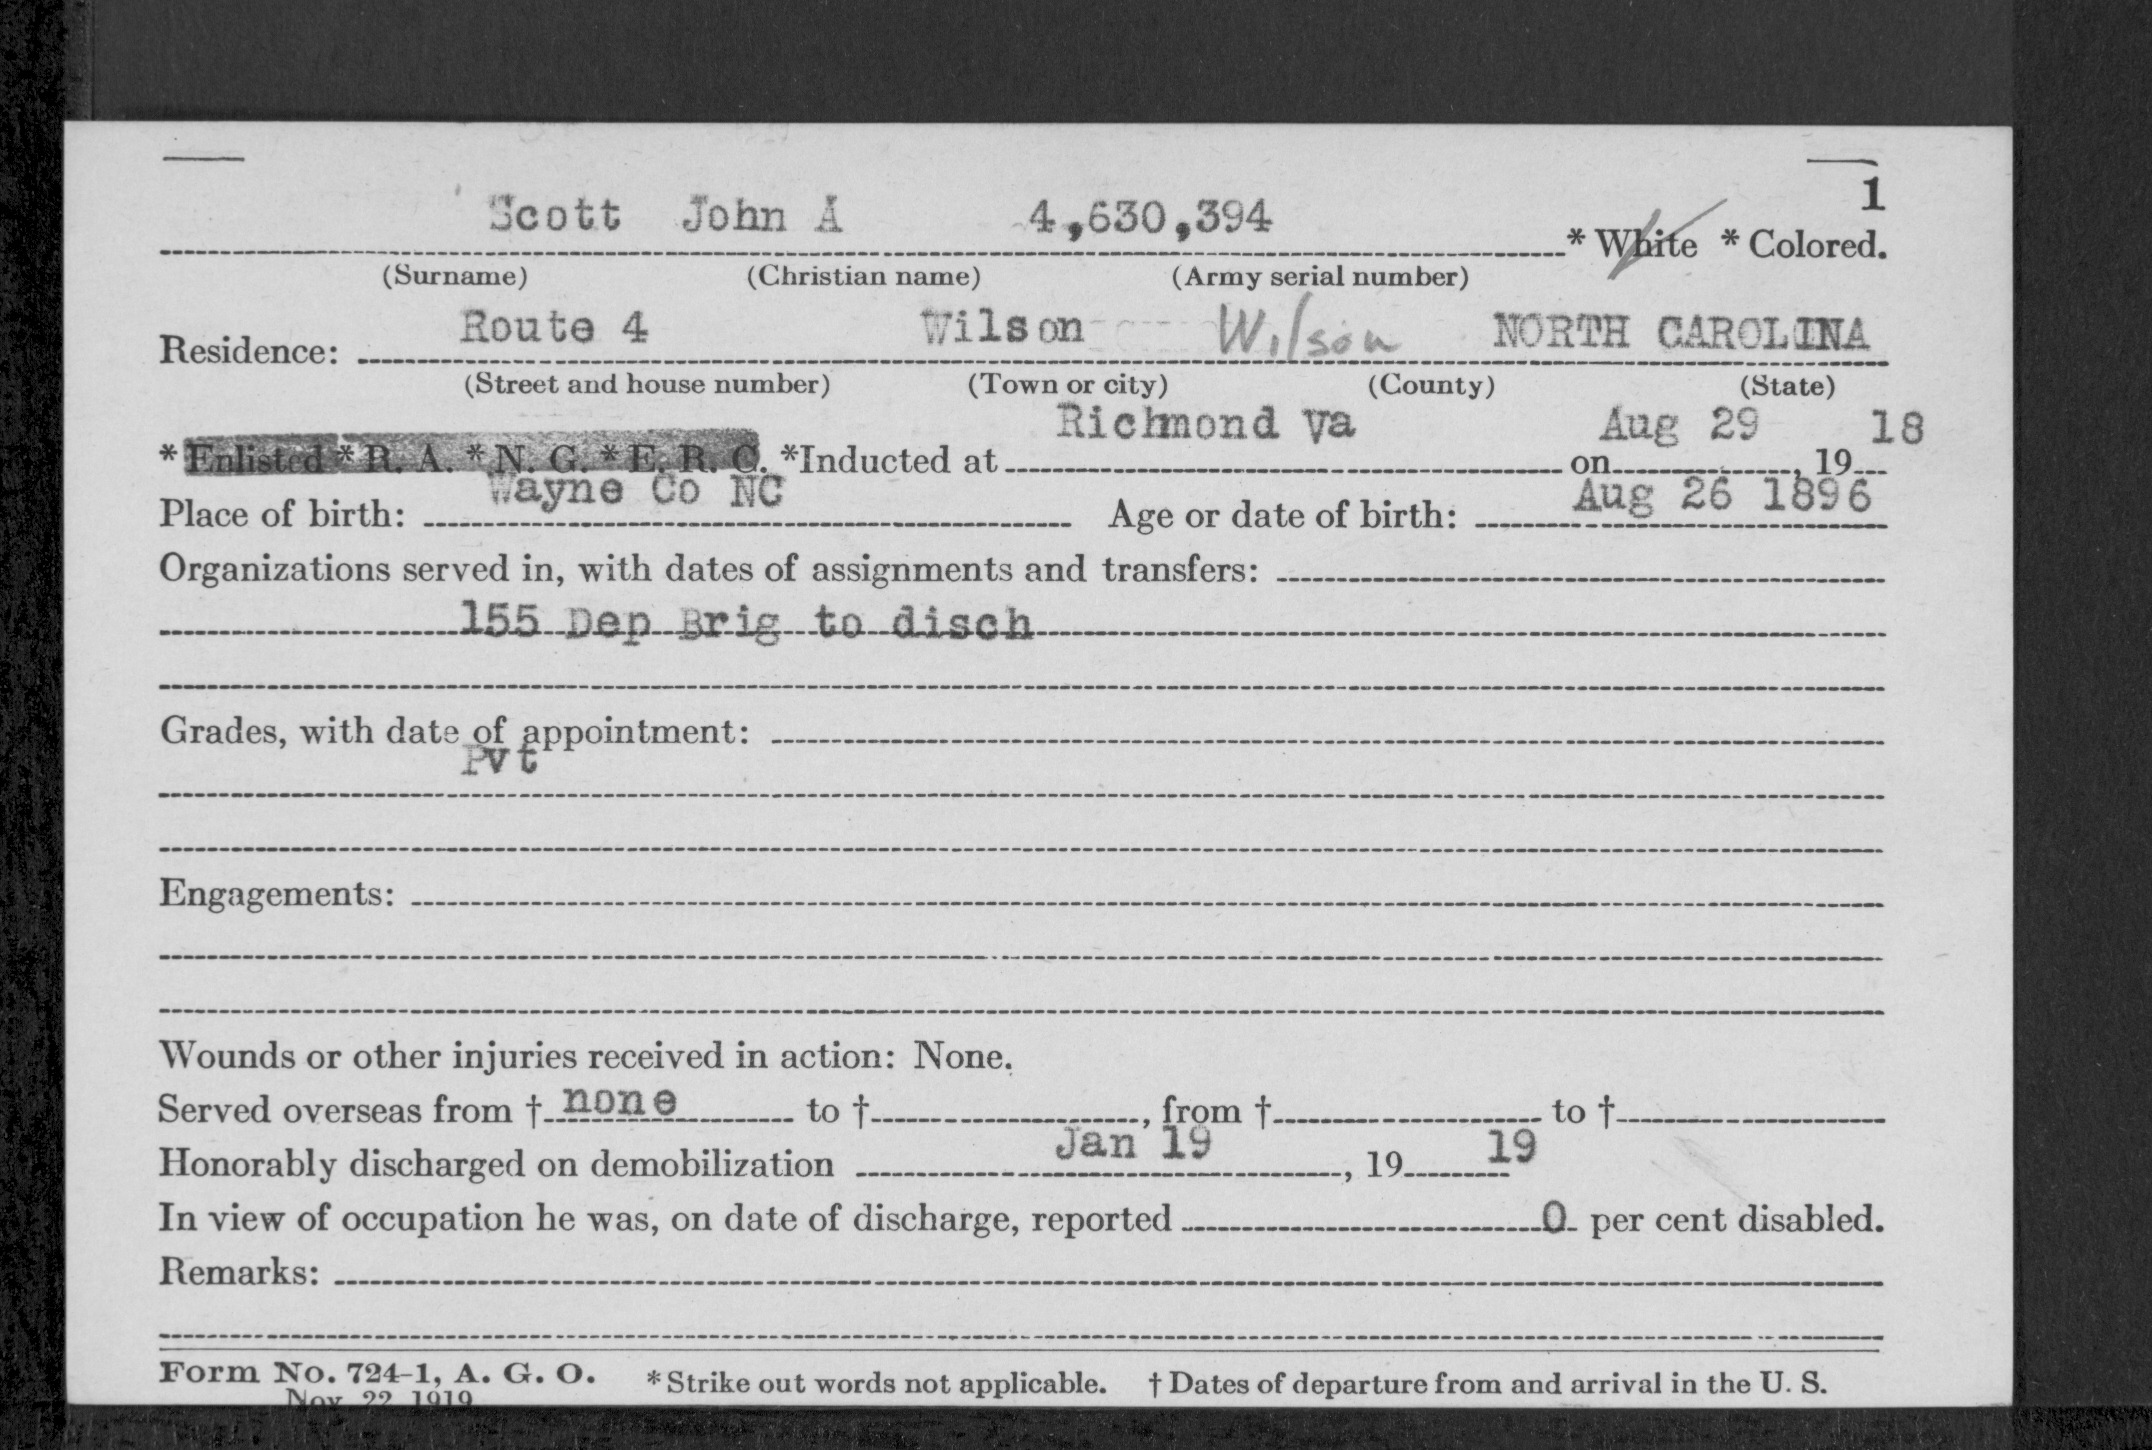 1
Scott John A 4,630,394 * White * Colored.
(Surname) (Christian name) (Army serial number)
Residence: Route 4 Wilson Wilson NORTH CAROLINA
(Street and house number) (Town or city) (County) (State)
* Enlisted * R. A. * N. G. * E. R. C. *Inducted at Richmond Va on Aug 29, 19 18
Place of birth: Wayne Co NC Age or date of birth: Aug 26 1896
Organizations served in, with dates of assignments and transfers:
155 Dep Brig to disch
Grades, with date of appointment:
Pvt
Engagements:
Wounds or other injuries received in action: None.
Served overseas from † none to † , from † to †
Honorably discharged on demobilization Jan 19, 19 19
In view of occupation he was, on date of discharge, reported 0 per cent disabled.
Remarks:
Form No. 724-1, A. G. O. * Strike out words not applicable. † Dates of departure from and arrival in the U. S.
Nov. 22 1919